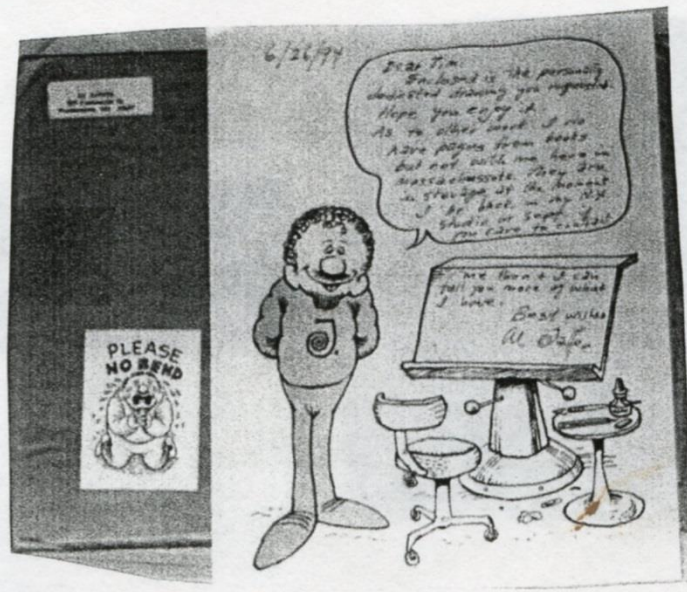 6/26/94
Dear Jim:
Enclosed is the personally
dedicated drawing you requested.
Hope you enjoy it.
As to other work I do
have pages from books
but not with me here in
Massachussets. They are
in storage at the moment
I be back in my N.Y.
studio in Sept. if
you care to contact
me then & I can
tell you more of what
I have.
Best wishes
Al Jaffee
PLEASE
NO BEND